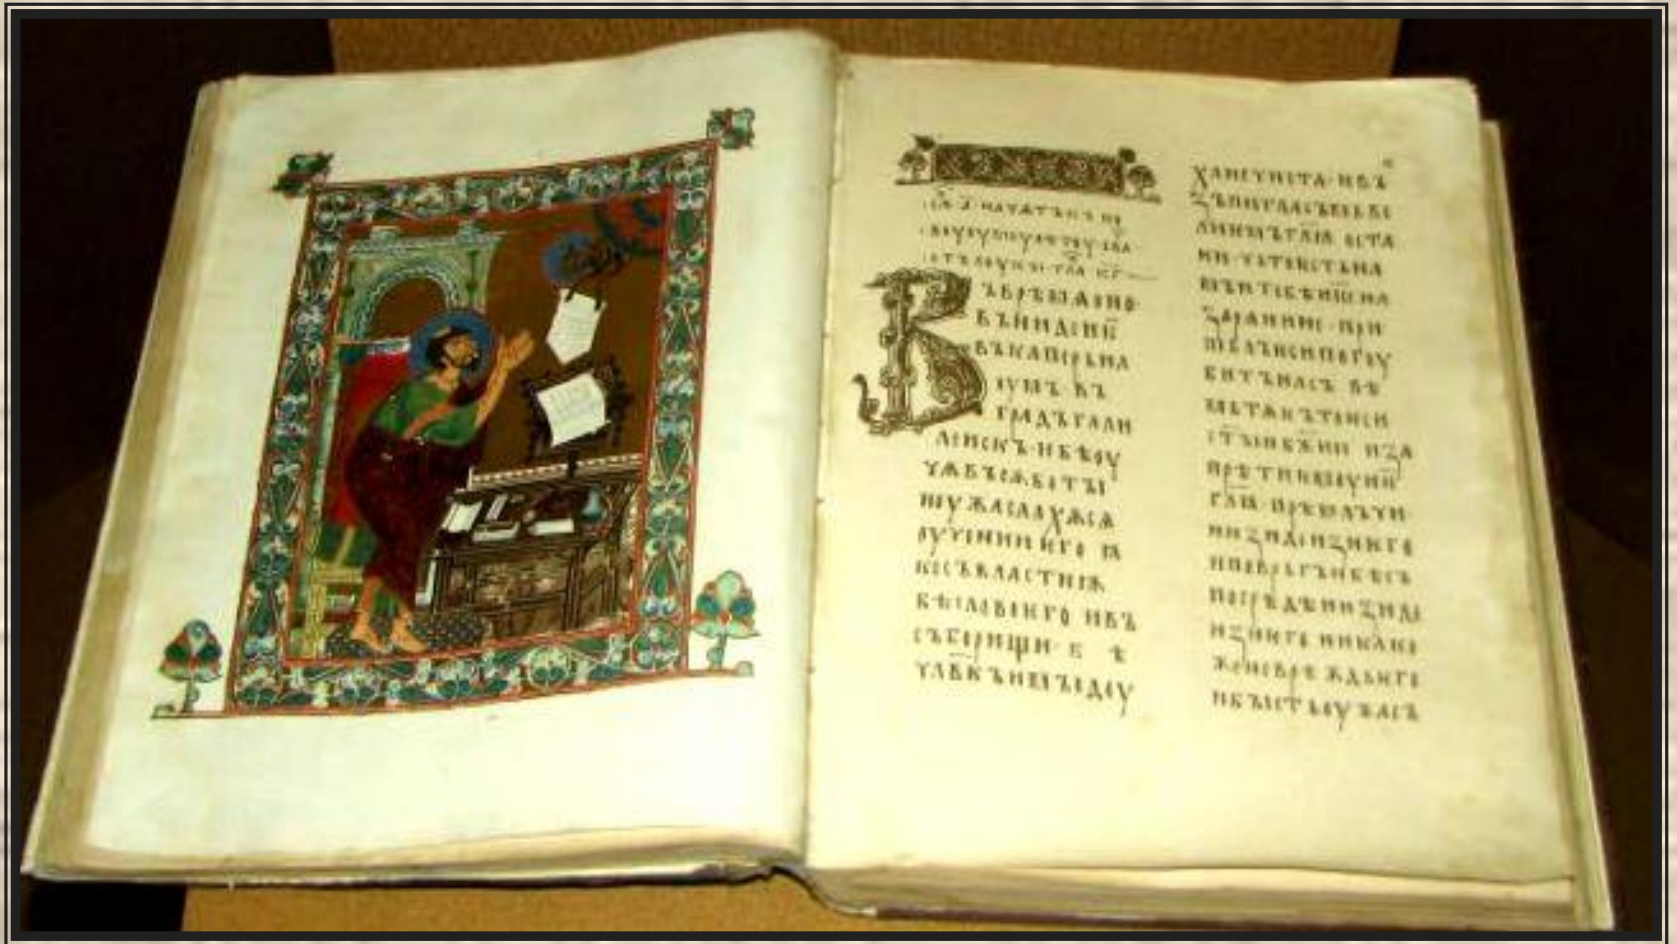 ъ врѣмѧ оно
въниде и҃с
въ каперьна
оумъ въ
градъ гали
леискъ и бѣ оу
чѧ въ сѫботы
и оужасаахѫ сѧ
о оучении ѥго ꙗ
ко съ властиѭ
бѣ слово ѥго и въ
съборищи· б ѣ
чл҃вкъ имы доу
ха нечиста· и въ
зъпи гласъмь ве
лиемь гл҃ѧ оста
ни· чьто ѥсть на
мъ и тебѣ и҃се на
зарѧнине· при
шьлъ ѥси погоу
битъ насъ вѣ
мь тѧ къто ѥси
ст҃ыи бжии и за
прѣти ѥмоу и҃с
гл҃ѧ· прѣмълъчи·
и изиди из него
и повръгъ и бѣсъ
посрѣдѣ изиде
из него никако
же не врѣждь ѥго
и бысть оужасъ